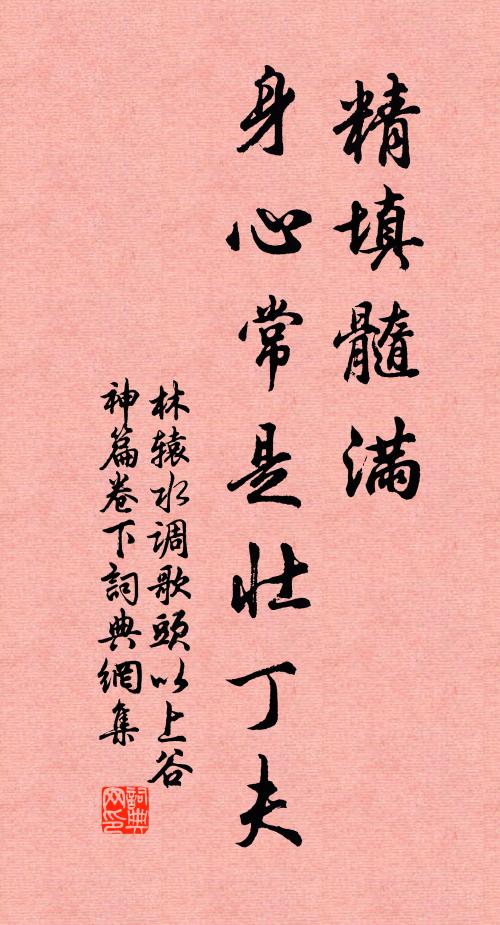 精填髓满
身心常是壮丁夫
林辕水调歌頭以上谷
神篇卷下詞典網集
詞典网印